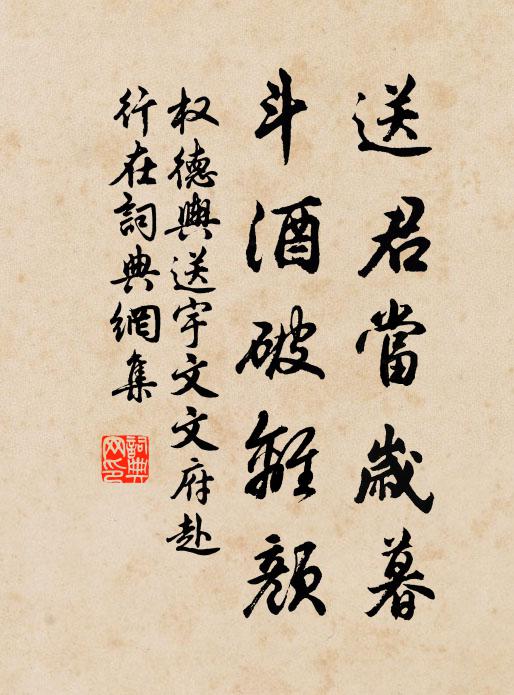 送君當歲暮
斗酒破離顏
权德輿送宇文文府赴
行在詞典網集
詞典网印